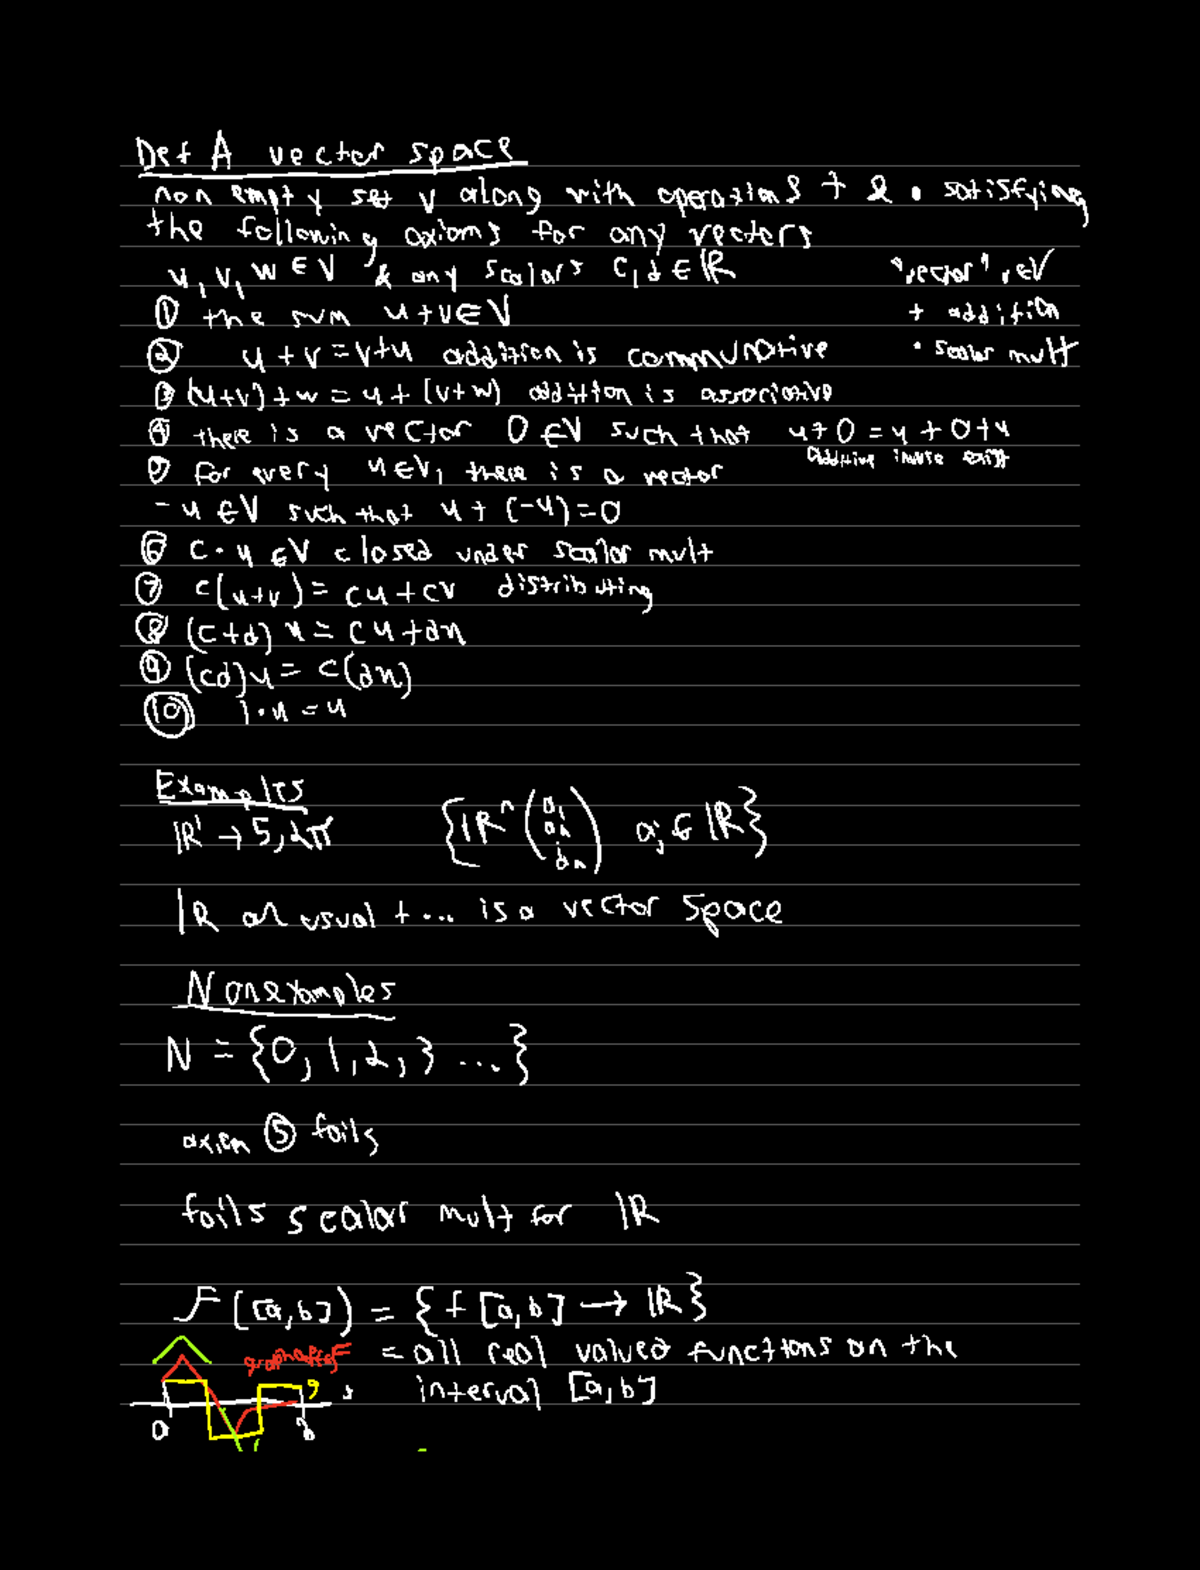 Def A vector space
non empty set V along with operations + & • satisfying
the following axioms for any vectors
u, v, w ∈ V & any scalars c, d ∈ ℝ "vector", ∈V
① the sum u+v∈V + addition
② u+v=v+u addition is commutative • scalar mult
③ (u+v)+w = u+(v+w) addition is associative
④ there is a vector 0 ∈V such that u+0=u+0+u
additive inverse exist
⑤ for every u∈V, there is a vector
-u ∈V such that u+(-u)=0
⑥ c•u ∈V closed under scalar mult
⑦ c(u+v)= cu+cv distributing
⑧ (c+d)u = cu+du
⑨ (cd)u = c(du)
⑩ 1•u = u
Examples
ℝ¹ → 5, 2π {ℝⁿ (a₁ a₂ ⋮ aₙ) aᵢ ∈ ℝ}
ℝ usual + ... is a vector space
Nonexamples
N = {0, 1, 2, 3 ...}
axiom ⑤ fails
fails scalar mult for ℝ
F([a,b]) = {f [a,b] → ℝ}
graph of f = all real valued functions on the
g interval [a,b]
a b